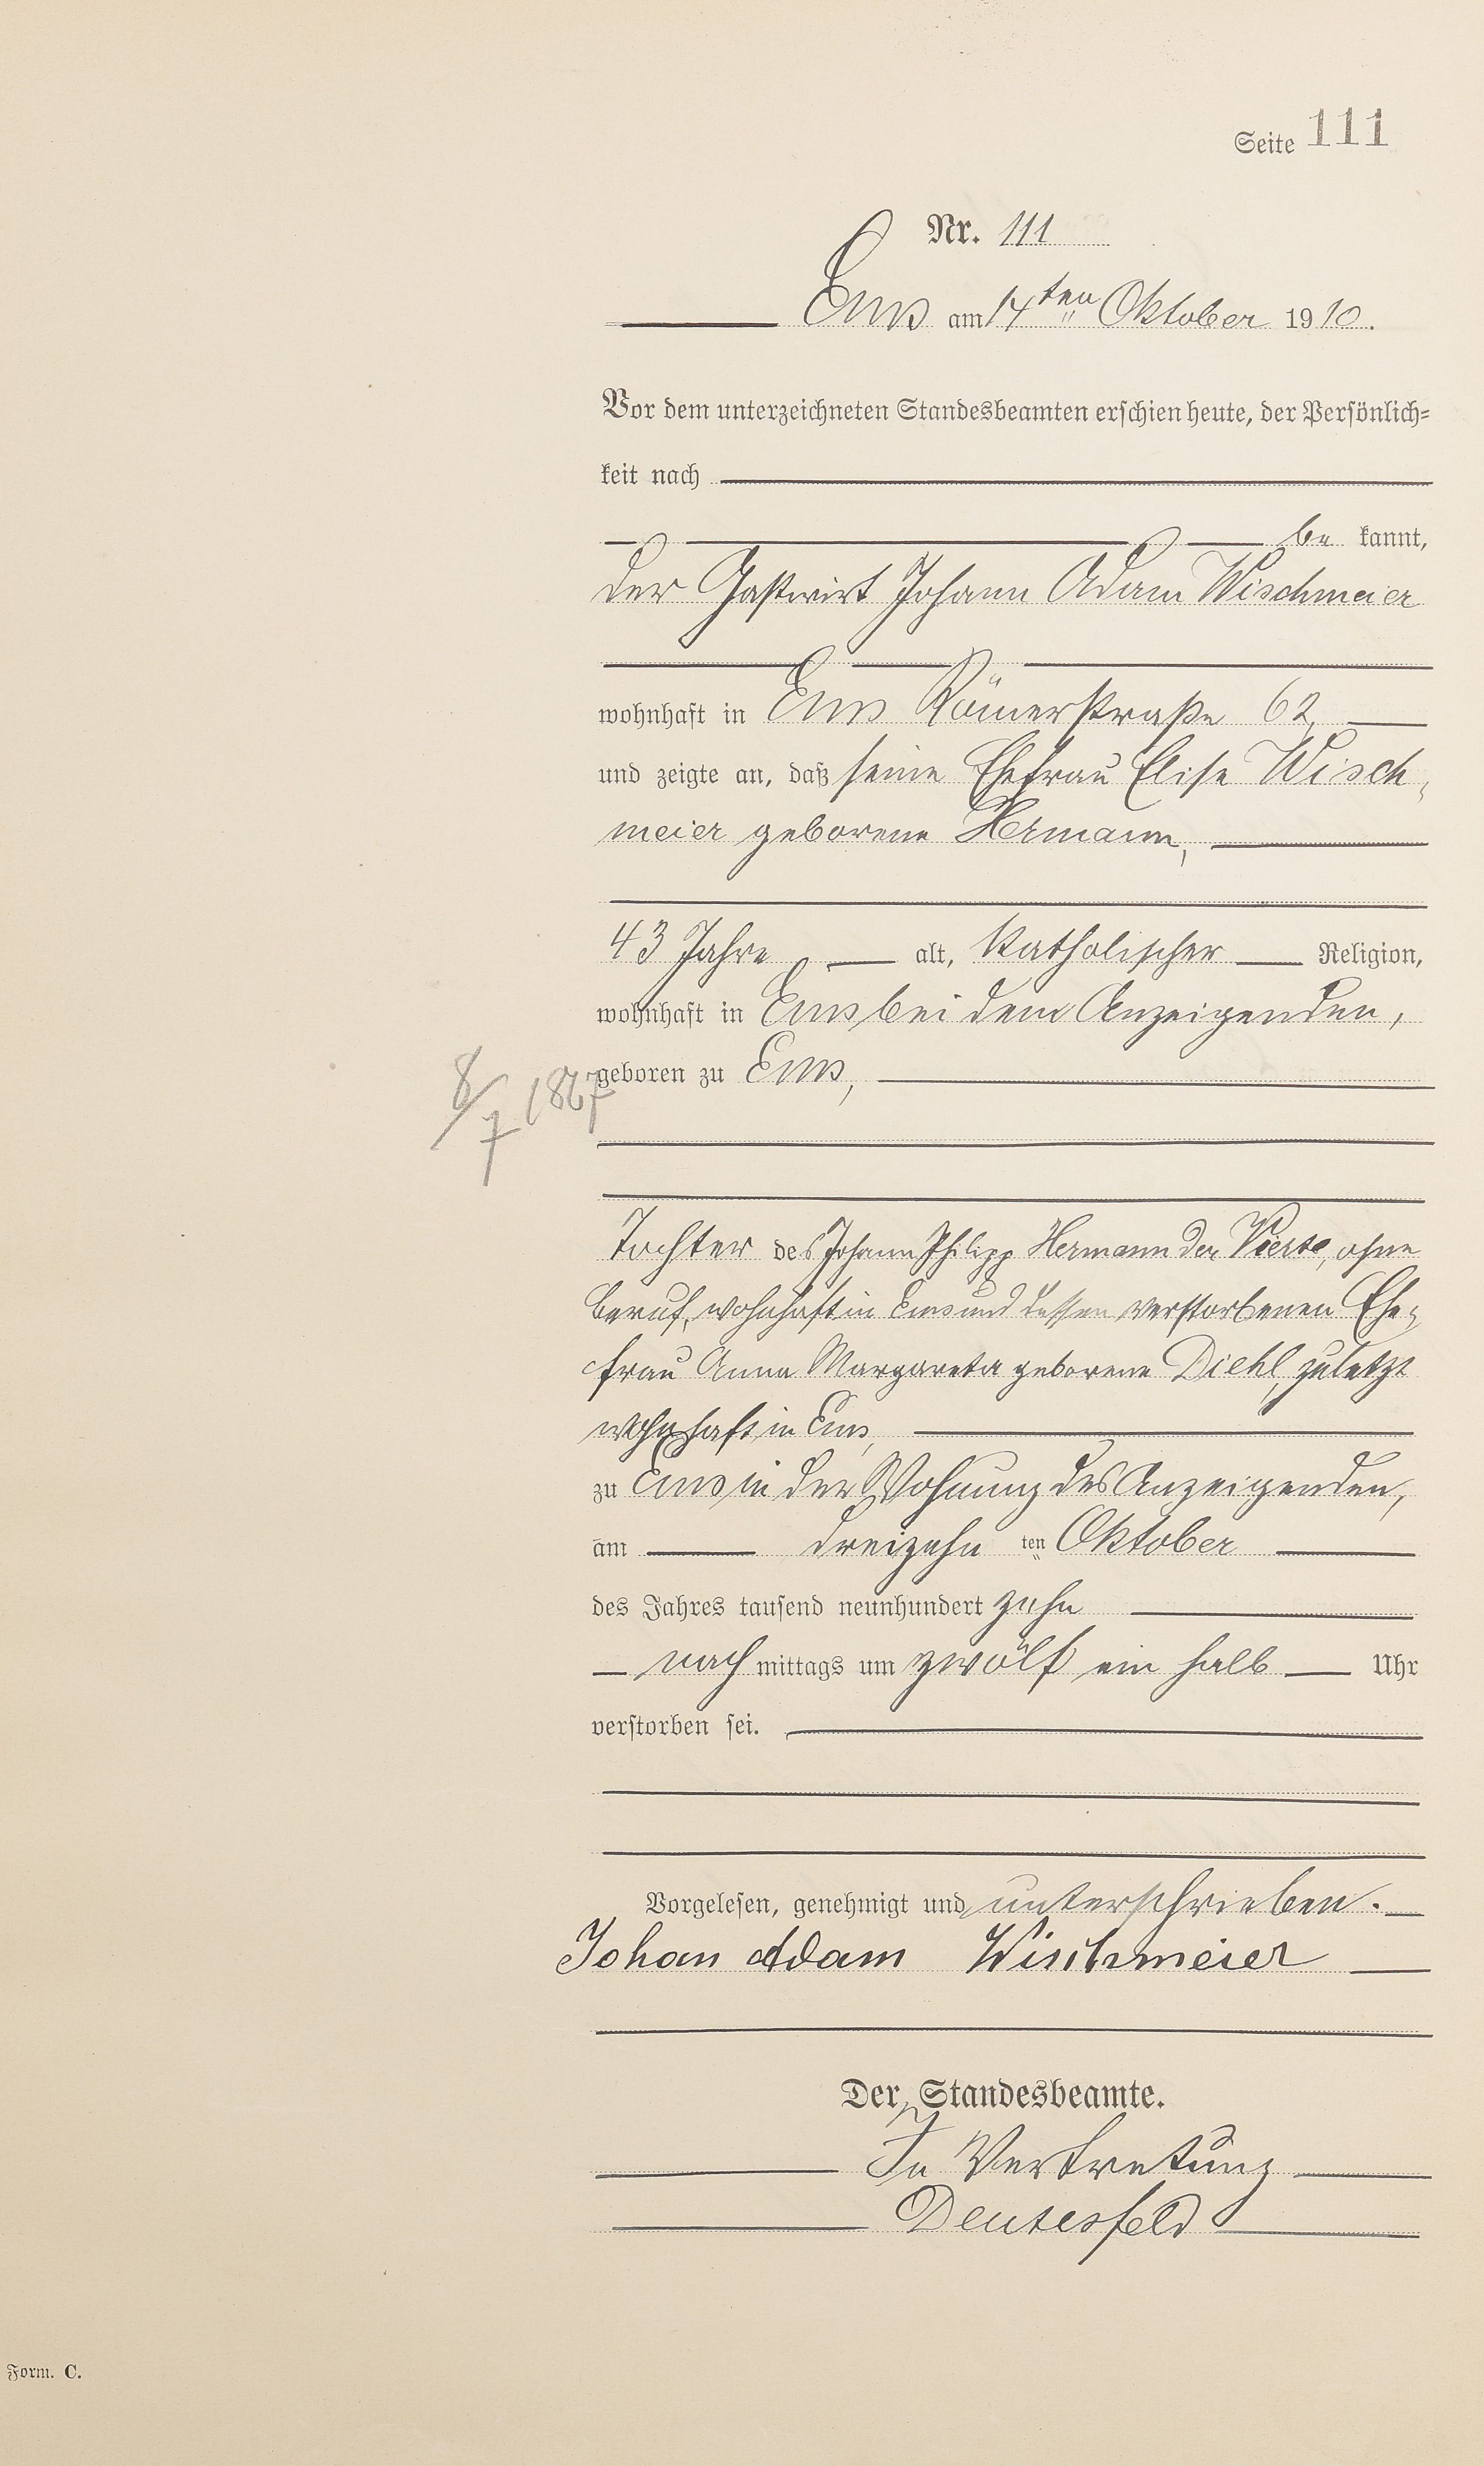 Seite 111
Nr. 111
Ems am 14ten Oktober 1910.
Vor dem unterzeichneten Standesbeamten erschien heute, der Persönlich=
keit nach
be kannt,
der Gastwirt Johann Adam Wischmeier
wohnhaft in Ems Römerstraße 62
und zeigte an, daß seine Ehefrau Elise Wisch,
meier geborene Hermann,
43 Jahre alt, katholischer Religion,
wohnhaft in Ems bei dem Anzeigenden,
geboren zu Ems,
8/7 1867
Tochter des Johann Philipp Hermann der Vierte, ohne
Beruf, wohnhaft in Ems und dessen verstorbenen Ehe=
frau Anna Margareta geborene Diehl, zuletzt
wohnhaft in Ems,
zu Ems in der Wohnung des Anzeigenden,
am dreizehn ten Oktober
des Jahres tausend neunhundert zehn
nach mittags um zwölf ein halb Uhr
verstorben sei.
Vorgelesen, genehmigt und unterschrieben.
Johan Adam Wischmeier
Der Standesbeamte.
In Vertretung
Deutesfeld
Form. C.